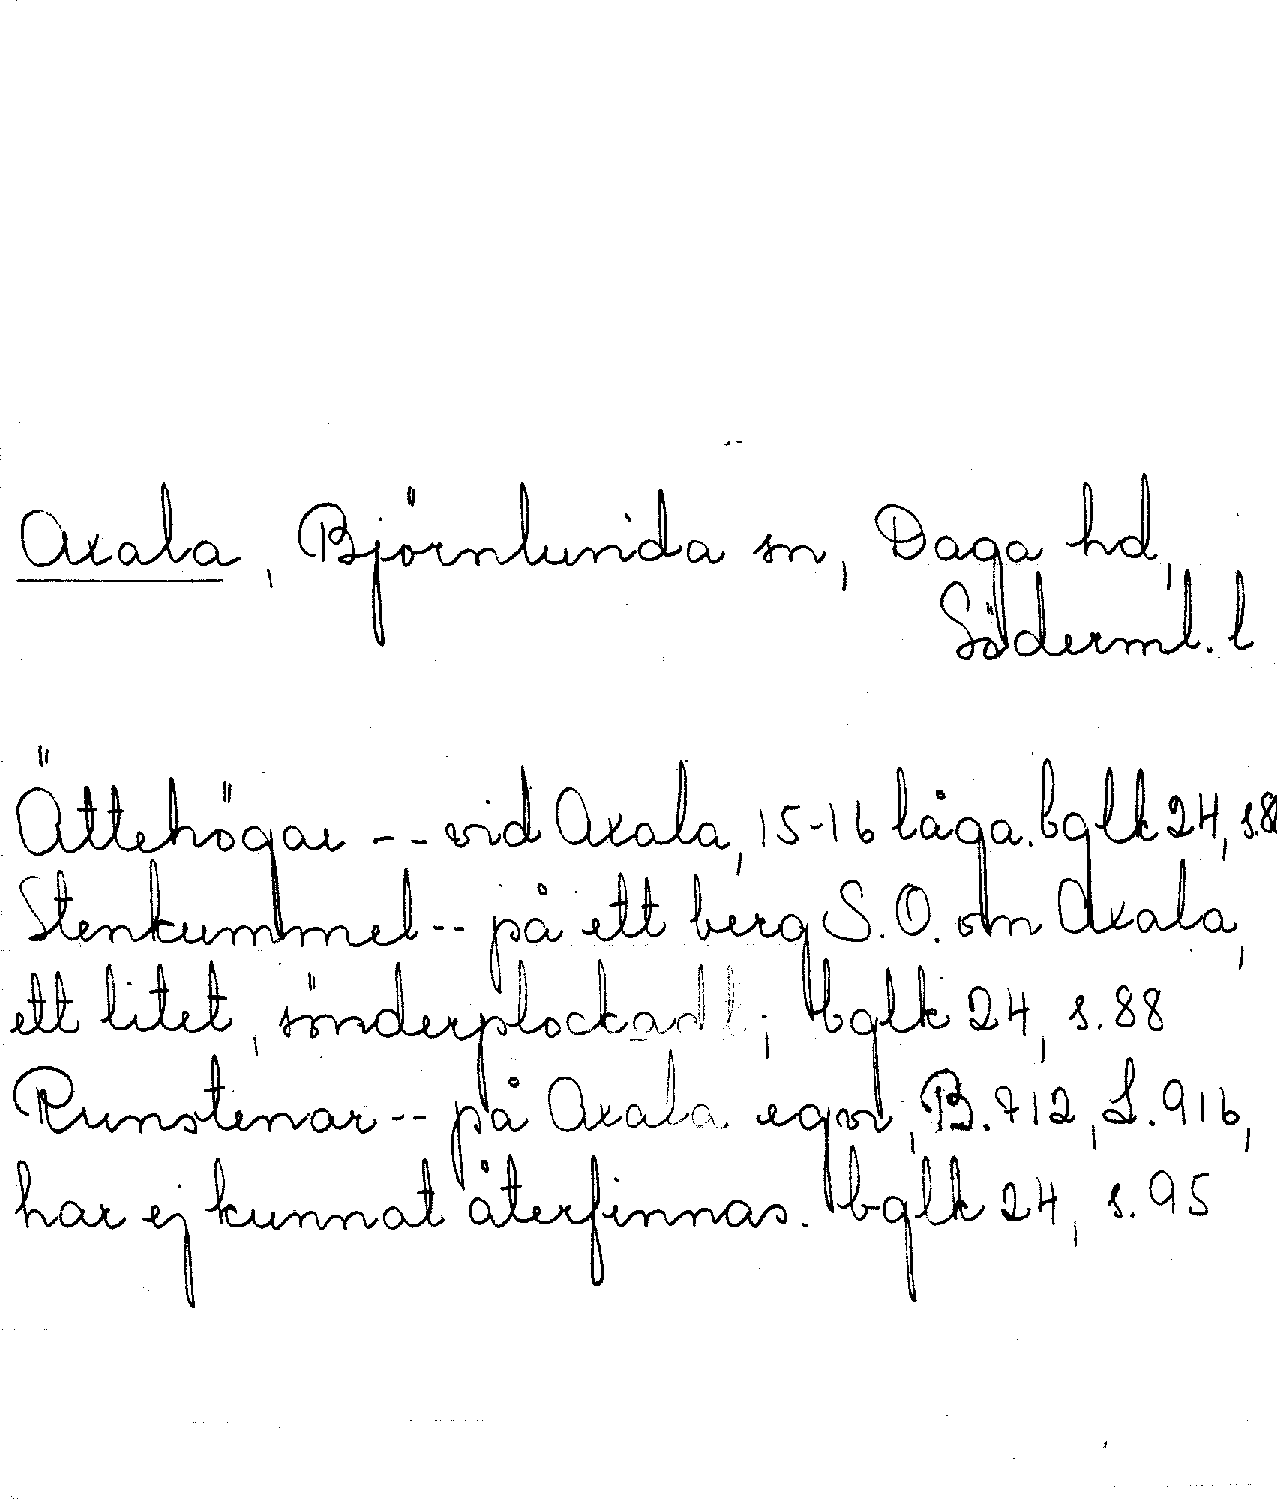 Axala, Björnlunda sn, Daga hd,
Söderml. l
Ättehögar -- vid Axala, 15-16 låga. bglk 24, s.88
Stenkummel -- på ett berg S.O. om Axala,
ett litet, sönderplockadt; bglk 24, s.88
Runstenar -- på Axala egor, B.712, L.916,
har ej kunnat återfinnas. bglk 24, s.95